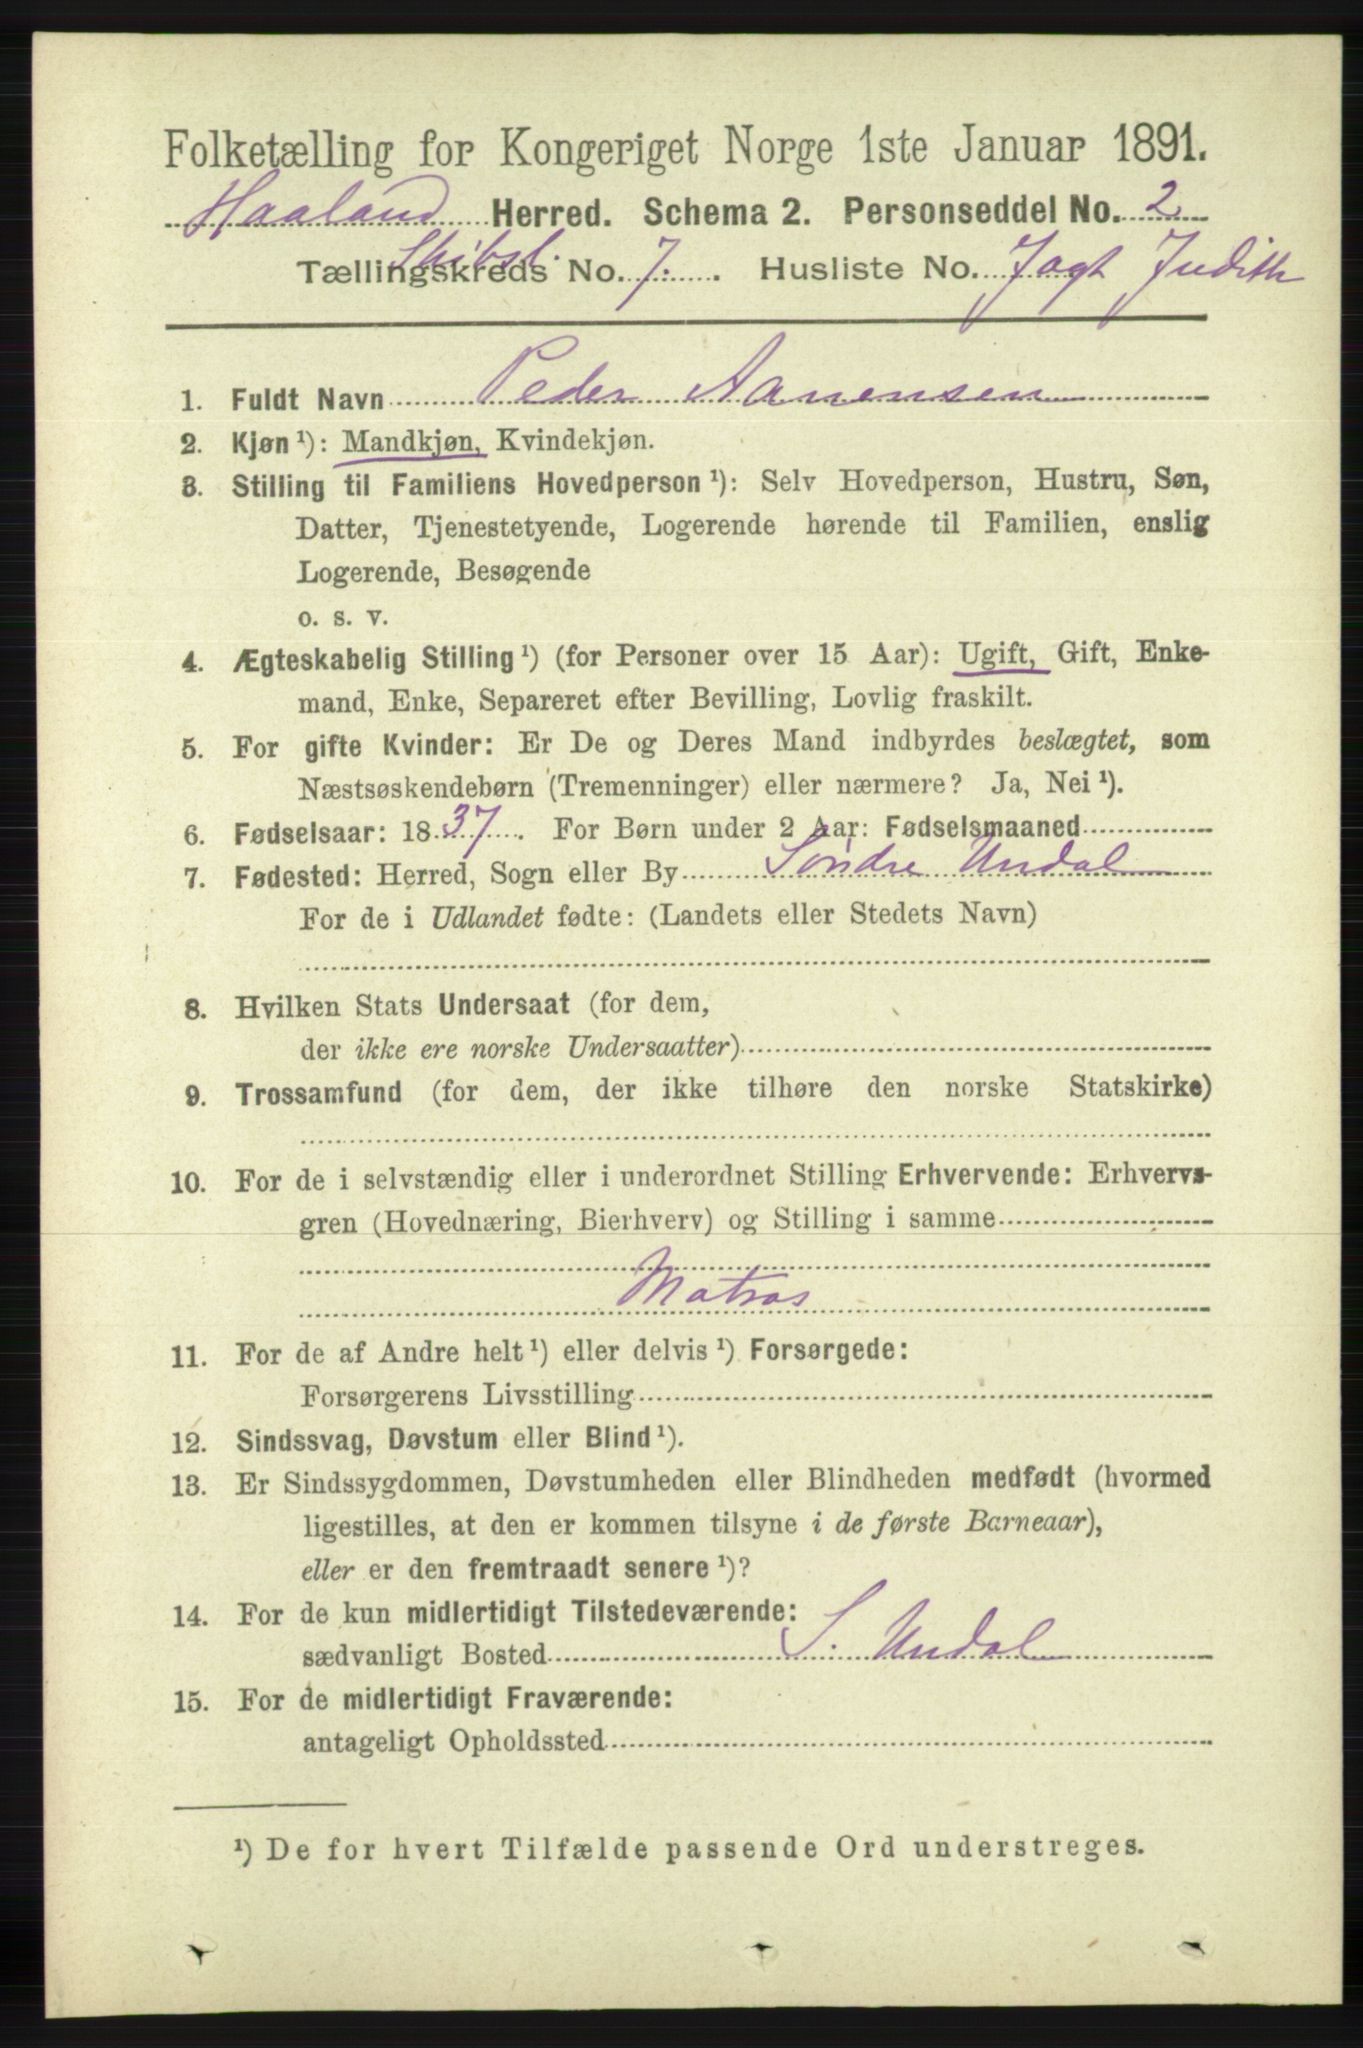 Folketælling for Kongeriget Norge 1ste Januar 1891.
Haaland Herred. Schema 2. Personseddel No. 2
Skibsl.
Tællingskreds No. 7. Husliste No. Jagt Judith
1. Fuldt Navn Peder Aanensen
2. Kjøn ¹): Mandkjøn, Kvindekjøn.
3. Stilling til Familiens Hovedperson ¹): Selv Hovedperson, Hustru, Søn,
Datter, Tjenestetyende, Logerende hørende til Familien, enslig
Logerende, Besøgende
o. s. v.
4. Ægteskabelig Stilling ¹) (for Personer over 15 Aar): Ugift, Gift, Enke-
mand, Enke, Separeret efter Bevilling, Lovlig fraskilt.
5. For gifte Kvinder: Er De og Deres Mand indbyrdes beslægtet, som
Næstsøskendebørn (Tremenninger) eller nærmere? Ja, Nei ¹).
6. Fødselsaar: 1837. For Børn under 2 Aar: Fødselsmaaned
7. Fødested: Herred, Sogn eller By Søndre Undal
For de i Udlandet fødte: (Landets eller Stedets Navn)
8. Hvilken Stats Undersaat (for dem,
der ikke ere norske Undersaatter)
9. Trossamfund (for dem, der ikke tilhøre den norske Statskirke)
10. For de i selvstændig eller i underordnet Stilling Erhvervende: Erhvervs-
gren (Hovednæring, Bierhverv) og Stilling i samme
Matros
11. For de af Andre helt ¹) eller delvis ¹) Forsørgede:
Forsørgerens Livsstilling
12. Sindssvag, Døvstum eller Blind ¹).
13. Er Sindssygdommen, Døvstumheden eller Blindheden medfødt (hvormed
ligestilles, at den er kommen tilsyne i de første Barneaar),
eller er den fremtraadt senere ¹)?
14. For de kun midlertidigt Tilstedeværende:
sædvanligt Bosted S. Undal
15. For de midlertidigt Fraværende:
antageligt Opholdssted
¹) De for hvert Tilfælde passende Ord understreges.